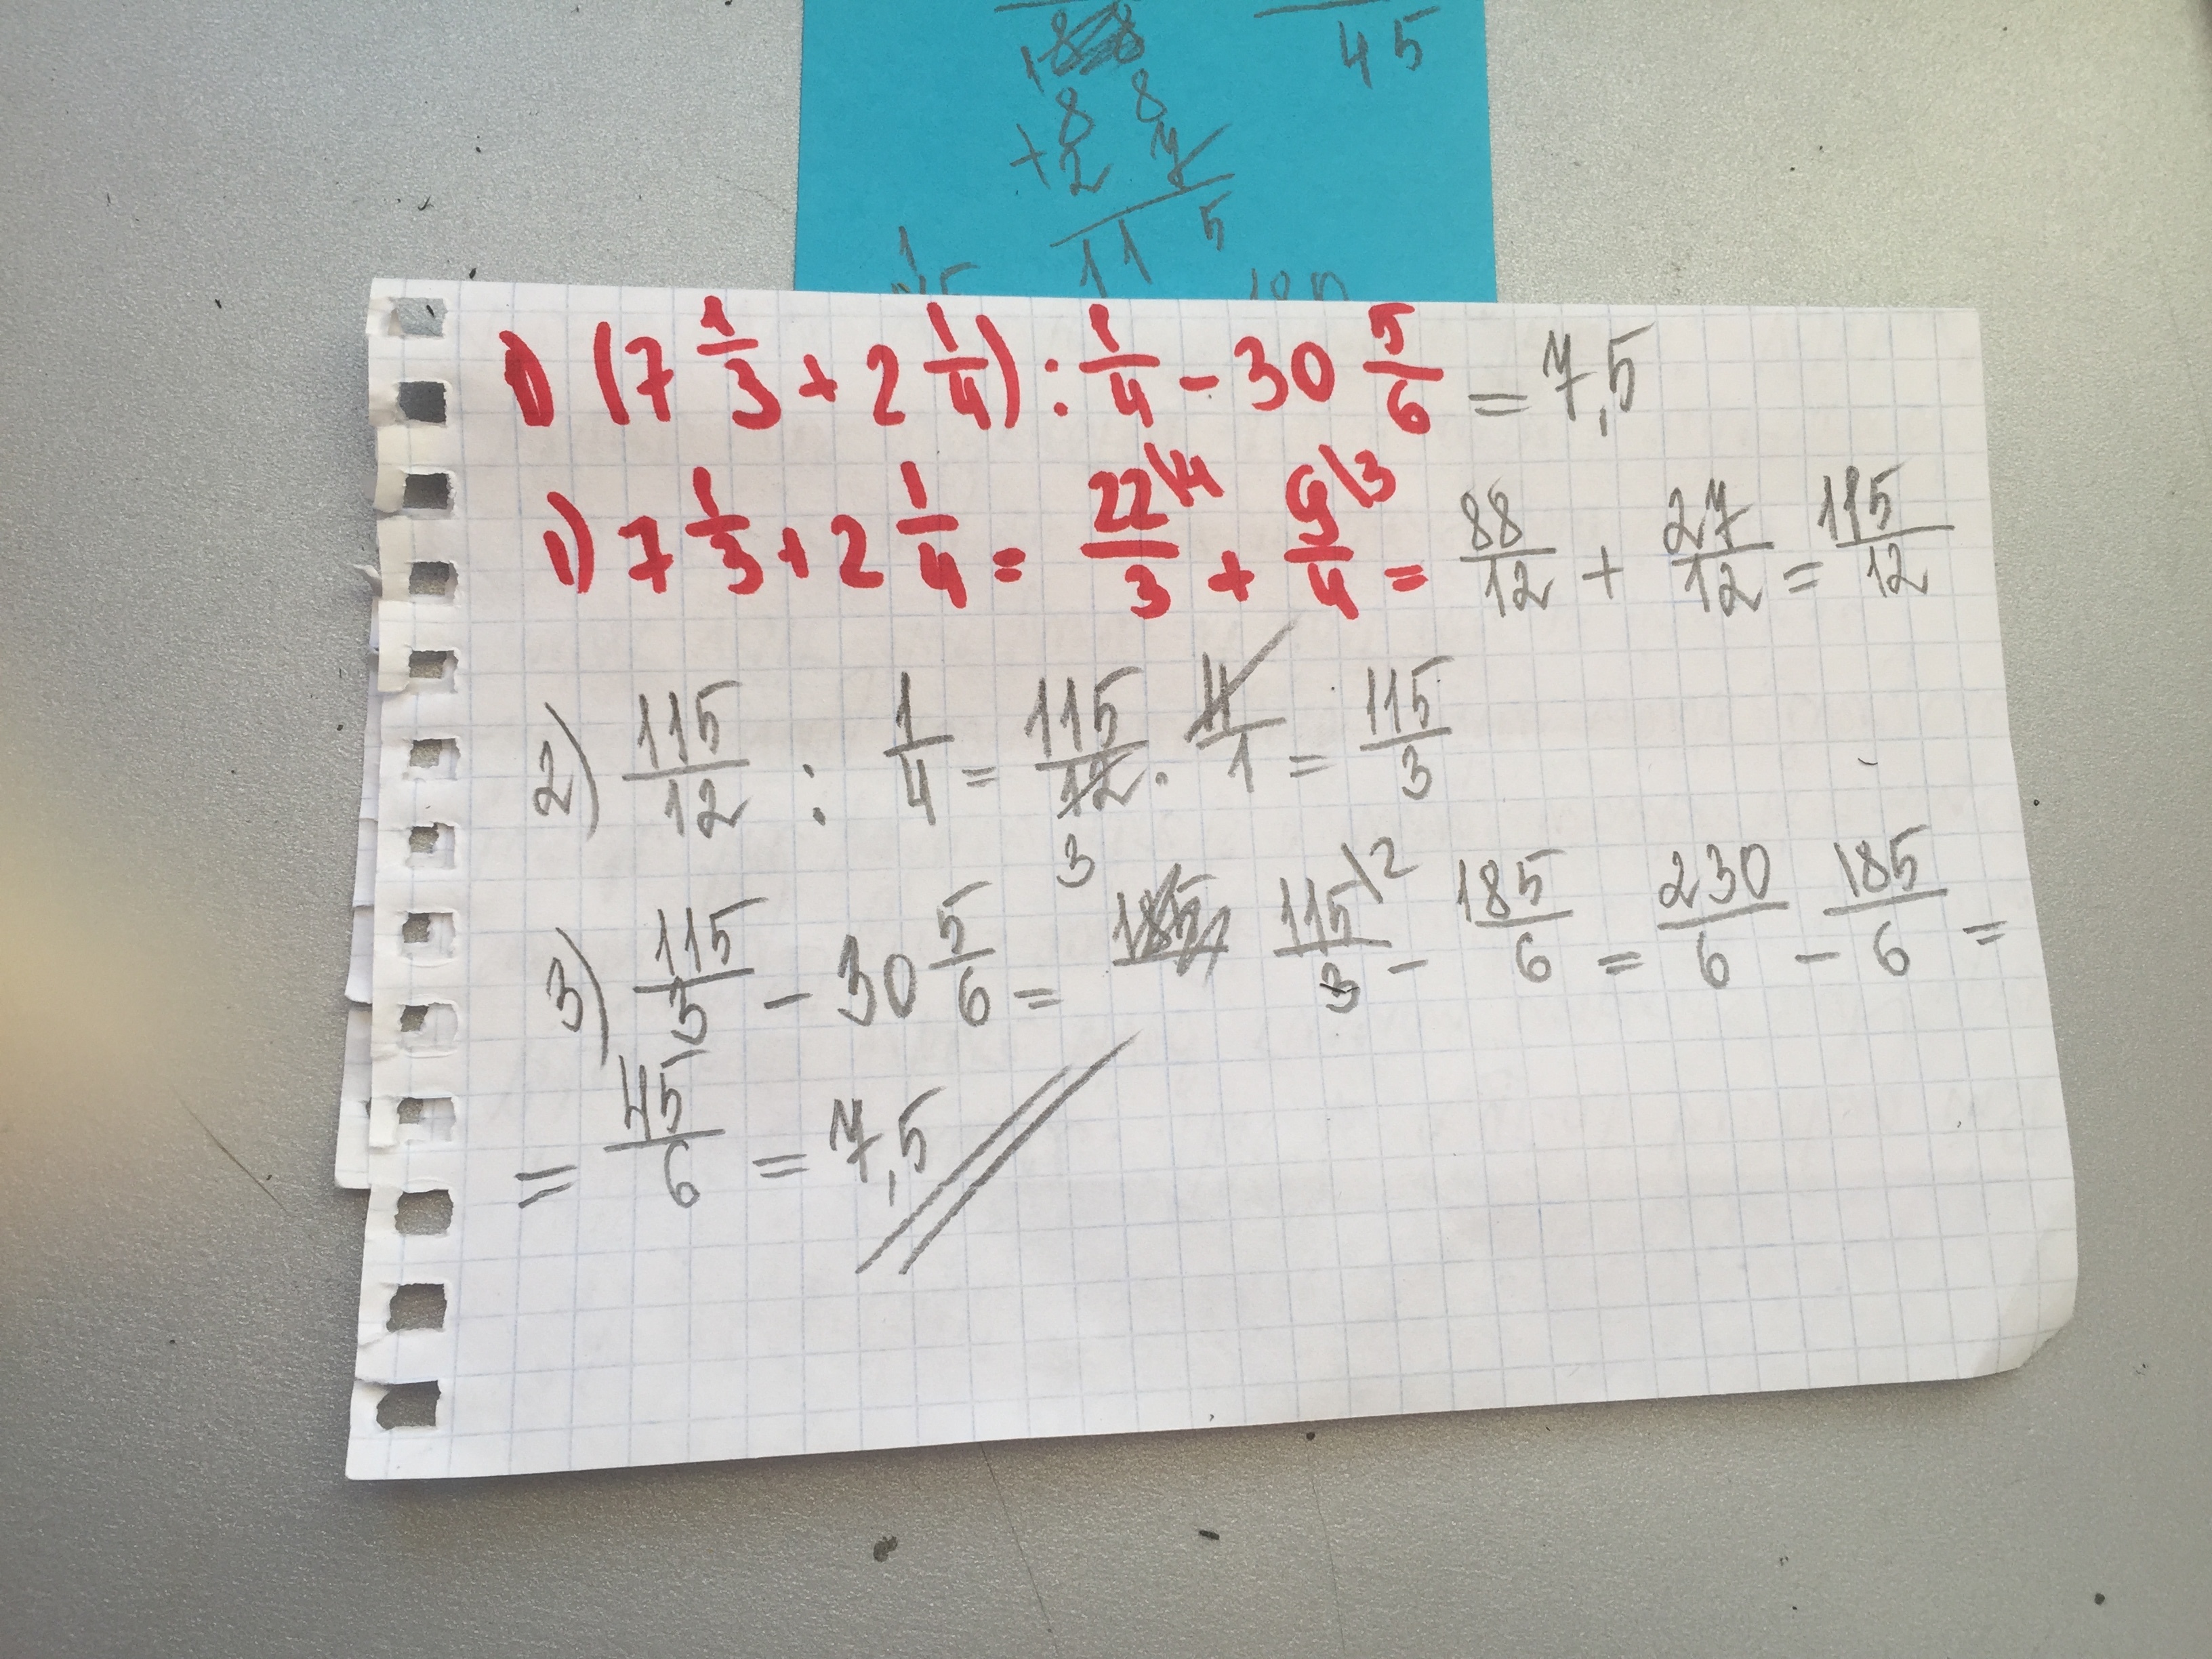 45
88
+ 2 7
11 5
1) (7 1/3 + 2 1/4) : 1/4 - 30 5/6 = 7,5
1) 7 1/3 + 2 1/4 = 22\4/3 + 9\3/4 = 88/12 + 27/12 = 115/12
2) 115/12 : 1/4 = 115/12 · 4/1 = 115/3
3
3) 115/3 - 30 5/6 = 115\2/3 - 185/6 = 230/6 - 185/6 =
= 45/6 = 7,5